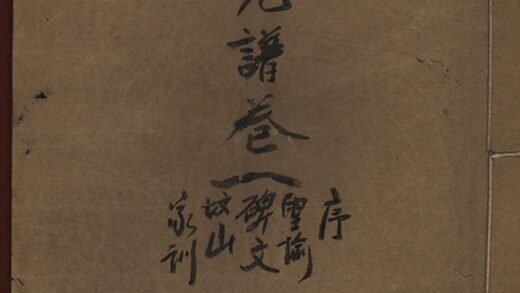 譜卷一
序
聖諭
碑文
坟山
家訓